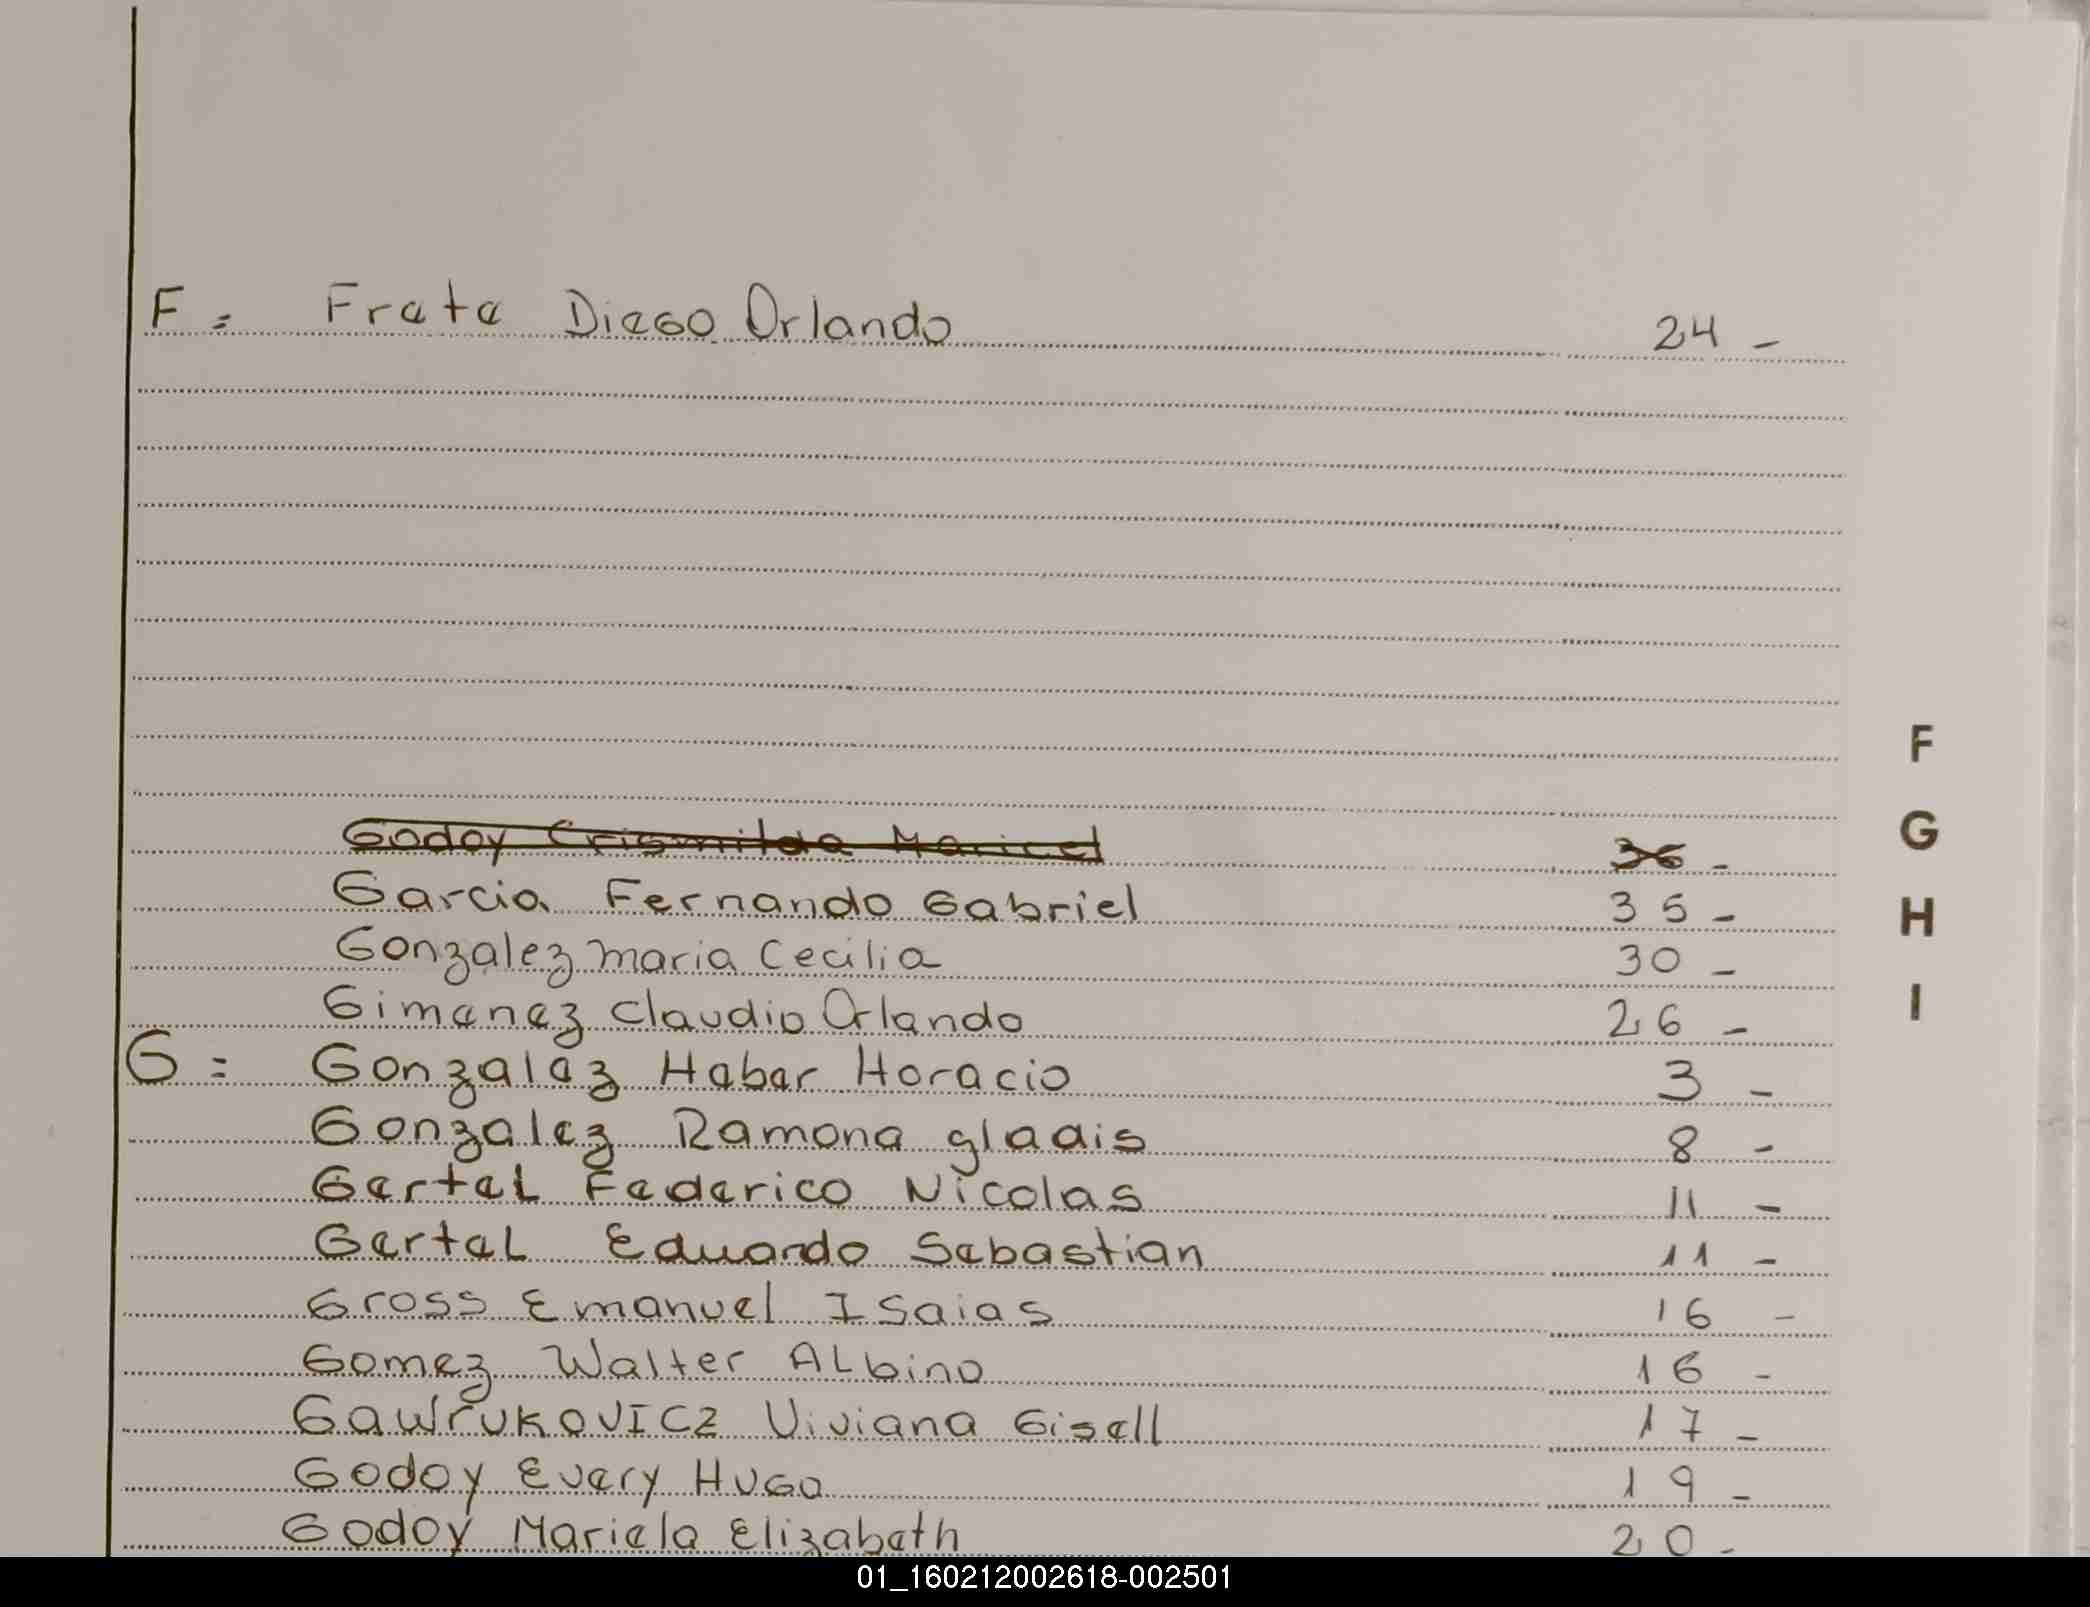 F = Frete Diego Orlando 24 -
Godoy Crismilda Maricel 36 -
Garcia Fernando Gabriel 35 -
Gonzalez maria Cecilia 30 -
Gimenez Claudio Orlando 26 -
G = Gonzalez Haber Horacio 3 -
Gonzalez Ramona gladis 8 -
Gertel Federico Nicolas 11 -
Gertel Eduardo Sebastian 11 -
Gross Emanuel Isaias 16 -
Gomez Walter ALbino 16 -
GAWruKOVICZ Viviana Gisell 17 -
Godoy Every Hugo 19 -
Godoy Mariela Elizabeth 20 -
F
G
H
I
01_160212002618-002501